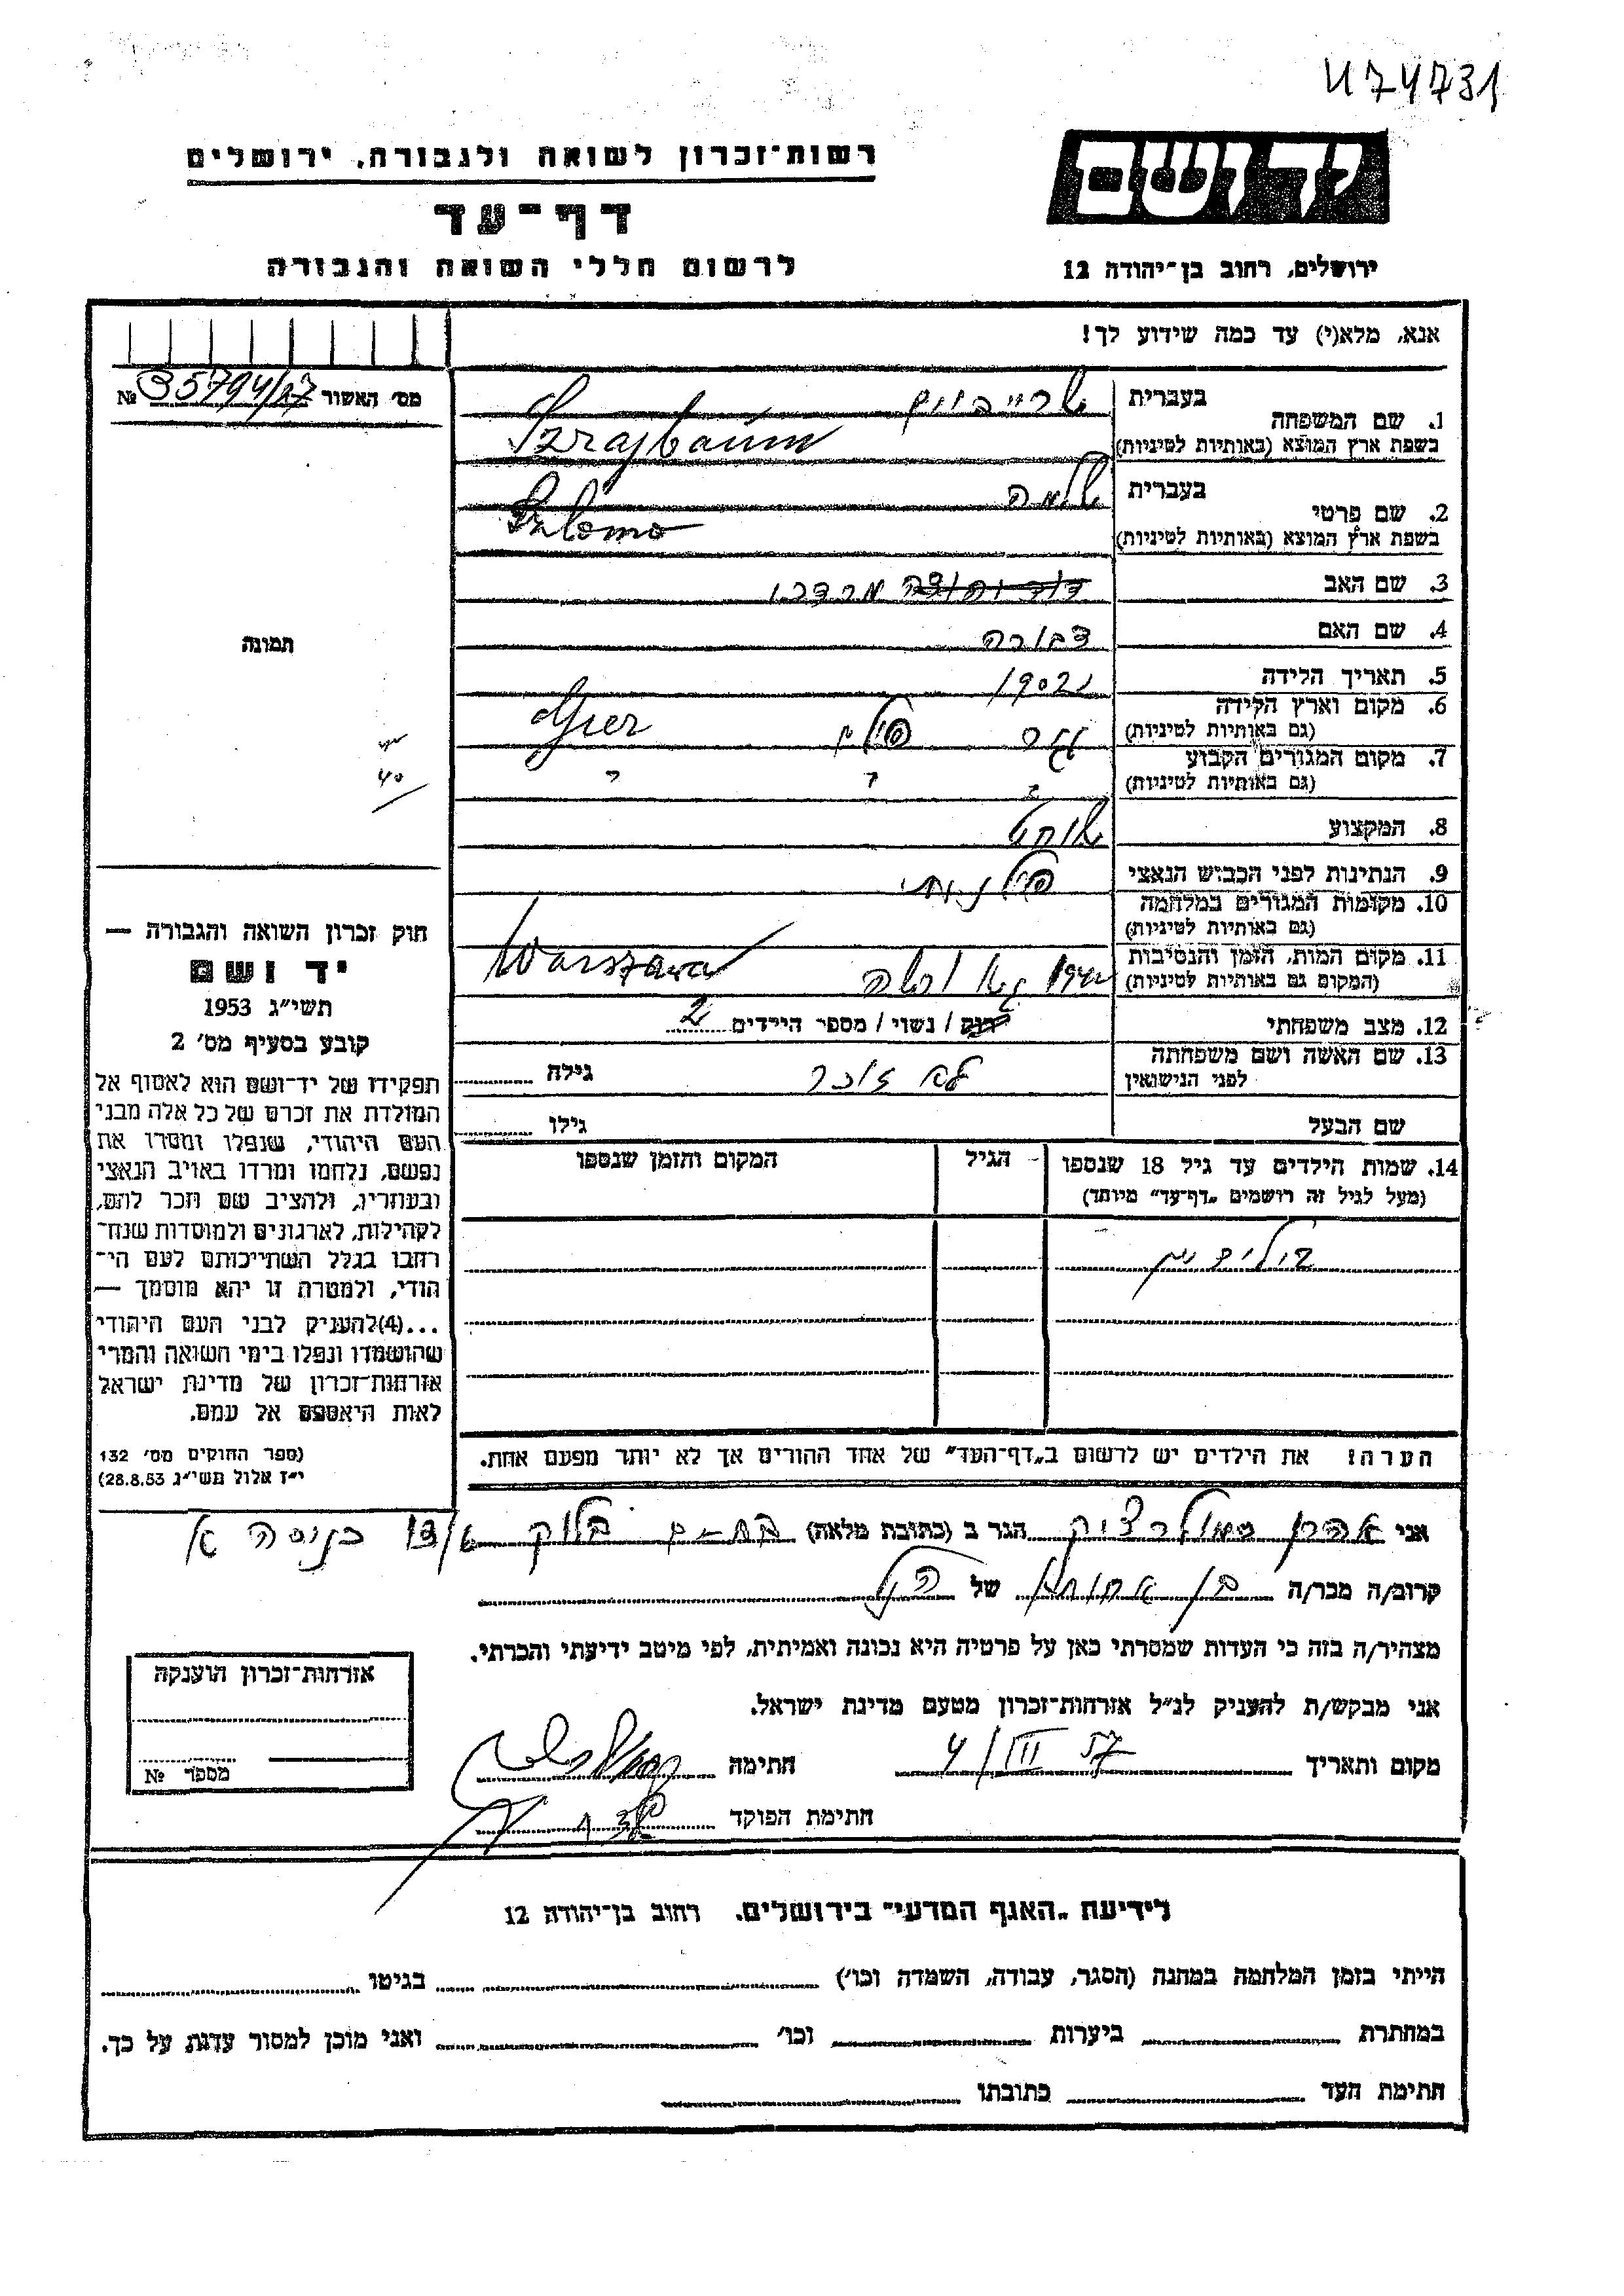 174731
יד ושם
רשות־זכרון לשואה ולגבורה, ירושלים
דף־עד
לרשום חללי השואה והגבורה
ירושלים, רחוב בן־יהודה 12
אנא, מלא(י) עד כמה שידוע לך!
מס׳ האשור № 35794/27
1. שם המשפחה
בעברית שרייבוים
בשפת ארץ המוצא (באותיות לטיניות) Szrajbaum
2. שם פרטי
בעברית שלמה
בשפת ארץ המוצא (באותיות לטיניות) Szlomo
3. שם האב מרדכי
4. שם האם דבורה
5. תאריך הלידה 1902
6. מקום וארץ הלידה
(גם באותיות לטיניות) פולין
7. מקום המגורים הקבוע
(גם באותיות לטיניות) " " "
8. המקצוע שוחט
9. הנתינות לפני הכבוש הנאצי פולנית
10. מקומות המגורים במלחמה
(גם באותיות לטיניות)
11. מקום המות, הזמן והנסיבות
(המקום גם באותיות לטיניות) Warszawa
12. מצב משפחתי רווק / נשוי / מספר הילדים 2
13. שם האשה ושם משפחתה
לפני הנישואין לא זוכר גילה
שם הבעל גילו
14. שמות הילדים עד גיל 18 שנספו
(מעל לגיל זה רושמים „דף־עד” מיוחד)
הגיל
המקום והזמן שנספו
הערה! את הילדים יש לרשום ב„דף־העד” של אחד ההורים אך לא יותר מפעם אחת.
תמונה
40
חוק זכרון השואה והגבורה —
יד ושם
תשי״ג 1953
קובע בסעיף מס׳ 2
תפקידו של יד־ושם הוא לאסוף אל
המולדת את זכרם של כל אלה מבני
העם היהודי, שנפלו ומסרו את
נפשם, נלחמו ומרדו באויב הנאצי
ובעוזריו, ולהציב שם וזכר להם,
לקהילות, לארגונים ולמוסדות שנח־
רחבו בגלל השתייכותם לעם הי־
הודי, ולמטרה זו יהא מוסמך —
...(4)להעניק לבני העם היהודי
שהושמדו ונפלו בימי השואה והמרי
אזרחות־זכרון של מדינת ישראל
לאות היאספם אל עמם.
(ספר החוקים מס׳ 132
י״ז אלול תשי״ג 28.8.53)
אני אהרן הגר ב (כתובת מלאה) בת-ים בלוק כניסה א
קרוב/ה מכר/ה בן אחות של הנ״ל
מצהיר/ה בזה כי העדות שמסרתי כאן על פרטיה היא נכונה ואמיתית, לפי מיטב ידיעתי והכרתי.
אני מבקש/ת להעניק לנ״ל אזרחות־זכרון מטעם מדינת ישראל.
מקום ותאריך 4/III 57 חתימה
חתימת הפוקד
אזרחות־זכרון הוענקה
מספר №
לידיעת „האגף המדעי” בירושלים. רחוב בן־יהודה 12
הייתי בזמן המלחמה במחנה (הסגר, עבודה, השמדה וכו׳) בגיטו
במחתרת ביערות וכו׳ ואני מוכן למסור עדות על כך.
חתימת העד כתובתו